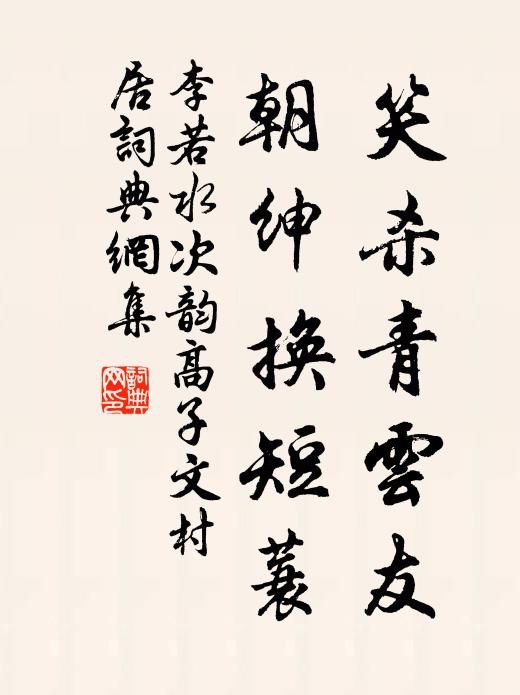 笑杀青雲友
朝紳換短蓑
李若水次韵高子文村
居詞典網集
詞典網印